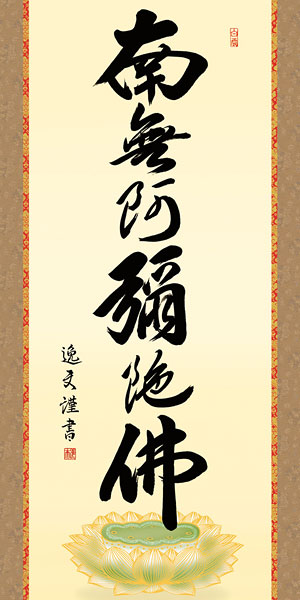 南無阿彌陀佛
逸文謹書